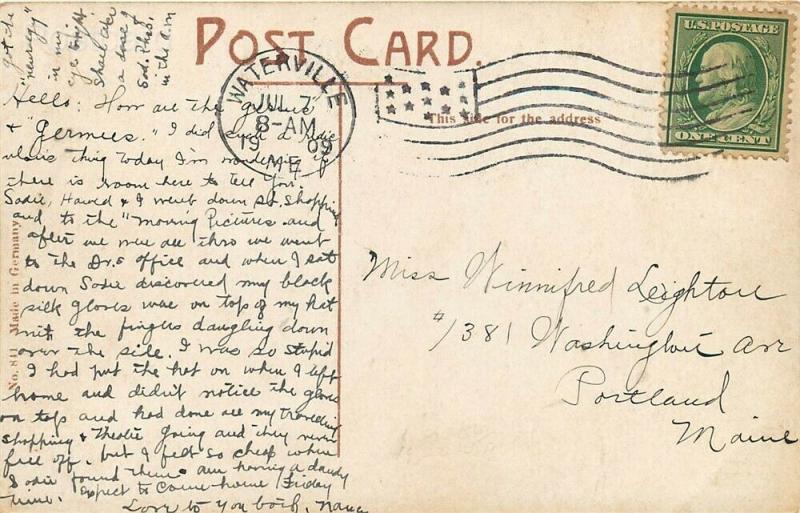 POST CARD.
This side for the address
WATERVILLE
JUL 7
8-AM
1909
ME.
U.S. POSTAGE
ONE CENT
No. 841 Made in Germany
Hello: How are the
& "Germies." I did such a
thing today I'm wondering if
there is room here to tell you.
Sadie, & I went down st. shopping
and to the "moving Pictures and
after we were all thro we went
to the Dr.s office and when I sat
down Sadie discovered my black
silk gloves were on top of my hat
with the fingers dangling down
over the side. I was so stupid
I had put the hat on when I left
home and didn't notice the gloves
on top and had done all my traveling
shopping & theatre going and they never
fell off. but I felt so cheap when
Sadie found them. am having a dandy
time. Expect to come home Friday
Love to you both, Nana
got the
in my
eye
Shall take
a dose of
Sod. Phos.
in the a.m
Miss Winnifred Leighton
#1381 Washington Ave
Portland
Maine